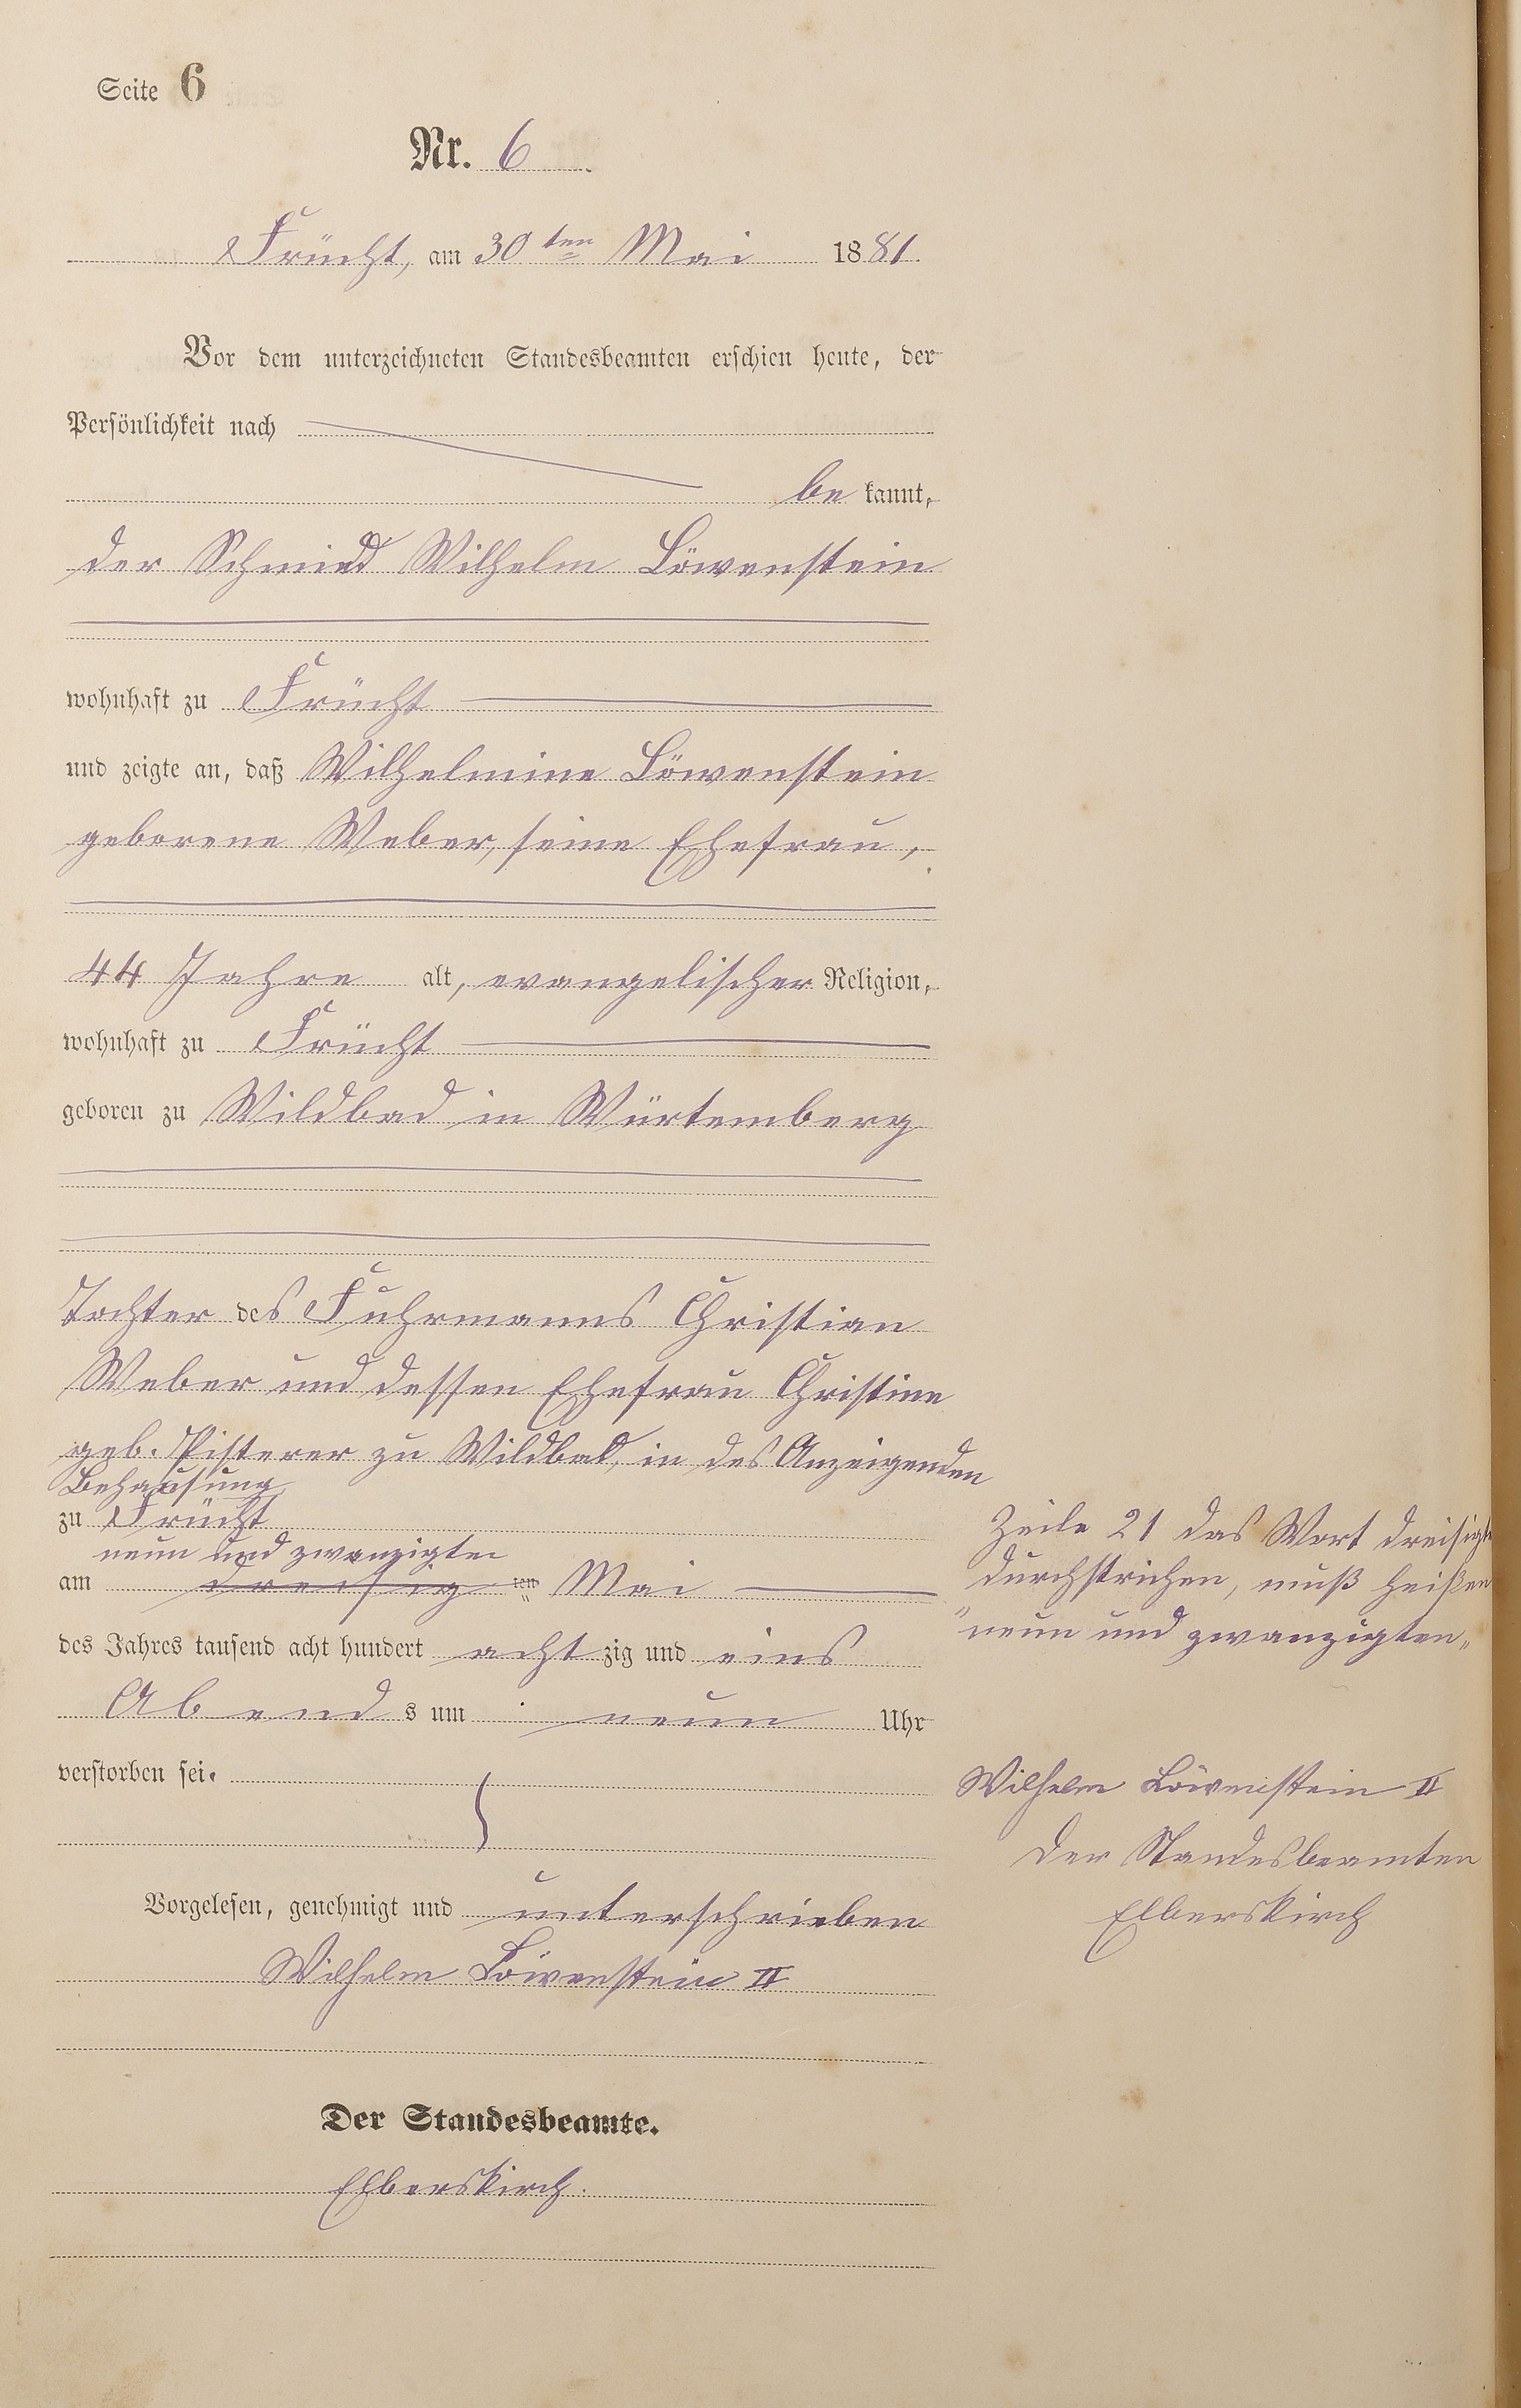 Seite 6
Nr. 6
Frücht, am 30ten Mai 1881.
Vor dem unterzeichneten Standesbeamten erschien heute, der
Persönlichkeit nach
be kannt,
der Schmied Wilhelm Löwenstein
wohnhaft zu Frücht
und zeigte an, daß Wilhelmine Löwenstein
geborene Weber, seine Ehefrau,
44 Jahre alt, evangelischer Religion,
wohnhaft zu Frücht
geboren zu Wildbad in Würtemberg
Tochter des Fuhrmanns Christian
Weber und dessen Ehefrau Christine
geb. Pisterer zu Wildbad, in des Anzeigenden
Behausung
zu Frücht
neun und zwanzigten
am dreisig ten Mai
des Jahres tausend acht hundert acht zig und eins
Abend s um neun Uhr
verstorben sei.
Vorgelesen, genehmigt und unterschrieben
Wilhelm Löwenstein II
Der Standesbeamte.
Elberskirch.
Zeile 21 das Wort dreisigte
durchstrichen, muß heißen
"neun und zwanzigten"
Wilhelm Löwenstein II
Der Standesbeamten
Elberskirch